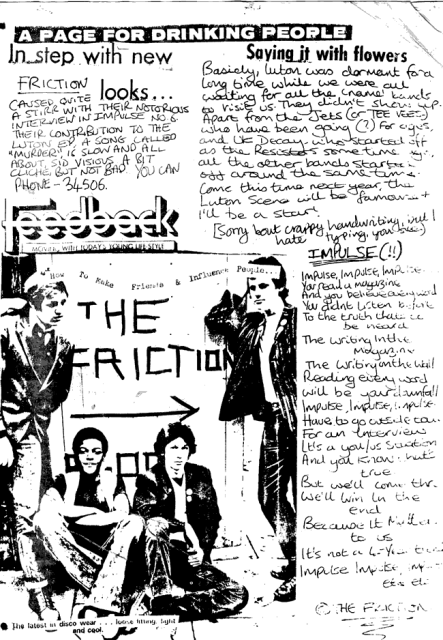 A PAGE FOR DRINKING PEOPLE
In step with new
looks...
FRICTION
CAUSED QUITE
A STIR WITH THEIR NOTORIOUS
INTERVIEW IN IMPULSE No 6.
THEIR CONTRIBUTION TO THE
LUTON EP, A SONG CALLED
"MURDER", IS SLOW AND ALL
ABOUT SID VISIOUS. A BIT
CLICHE BUT NOT BAD. YOU CAN
PHONE - 34506.
feedback
MOVING WITH TODAY'S YOUNG LIFE STYLE
Saying it with flowers
Basicly, Luton was dormant for a
long time while we were all
waiting for all the 'name' bands
to visit us. They didn't show up.
Apart from the Jets (or TEE VEES)
who have been going (?) for
and UK Decay who started off
as the Resistors some time
all the other bands started
off around the same time.
Come this time next year, the
Luton Scene will be famous +
I'll be a star.
[Sorry bout crappy handwriting, but I
hate typing, you see)
How To Make Friends & Influence People...
THE
FRICTION
IMPULSE (!!)
Impulse, Impulse, Impulse
You read a magazine
And you believe every word
You didnt listen
To the truth
be heard
The writing In the
Magazine
The Writing on the Wall
Reading every word
will be your downfall
Impulse, Impulse, Impulse
Have to go
For an Interview
It's a you/us Situation
And you know that's
true
But we'll come thr
We'll win In the
end
Because It
to us
It's not a
Impulse Impulse
© THE FRICTION
The latest in disco wear... loose fitting, light
and cool.